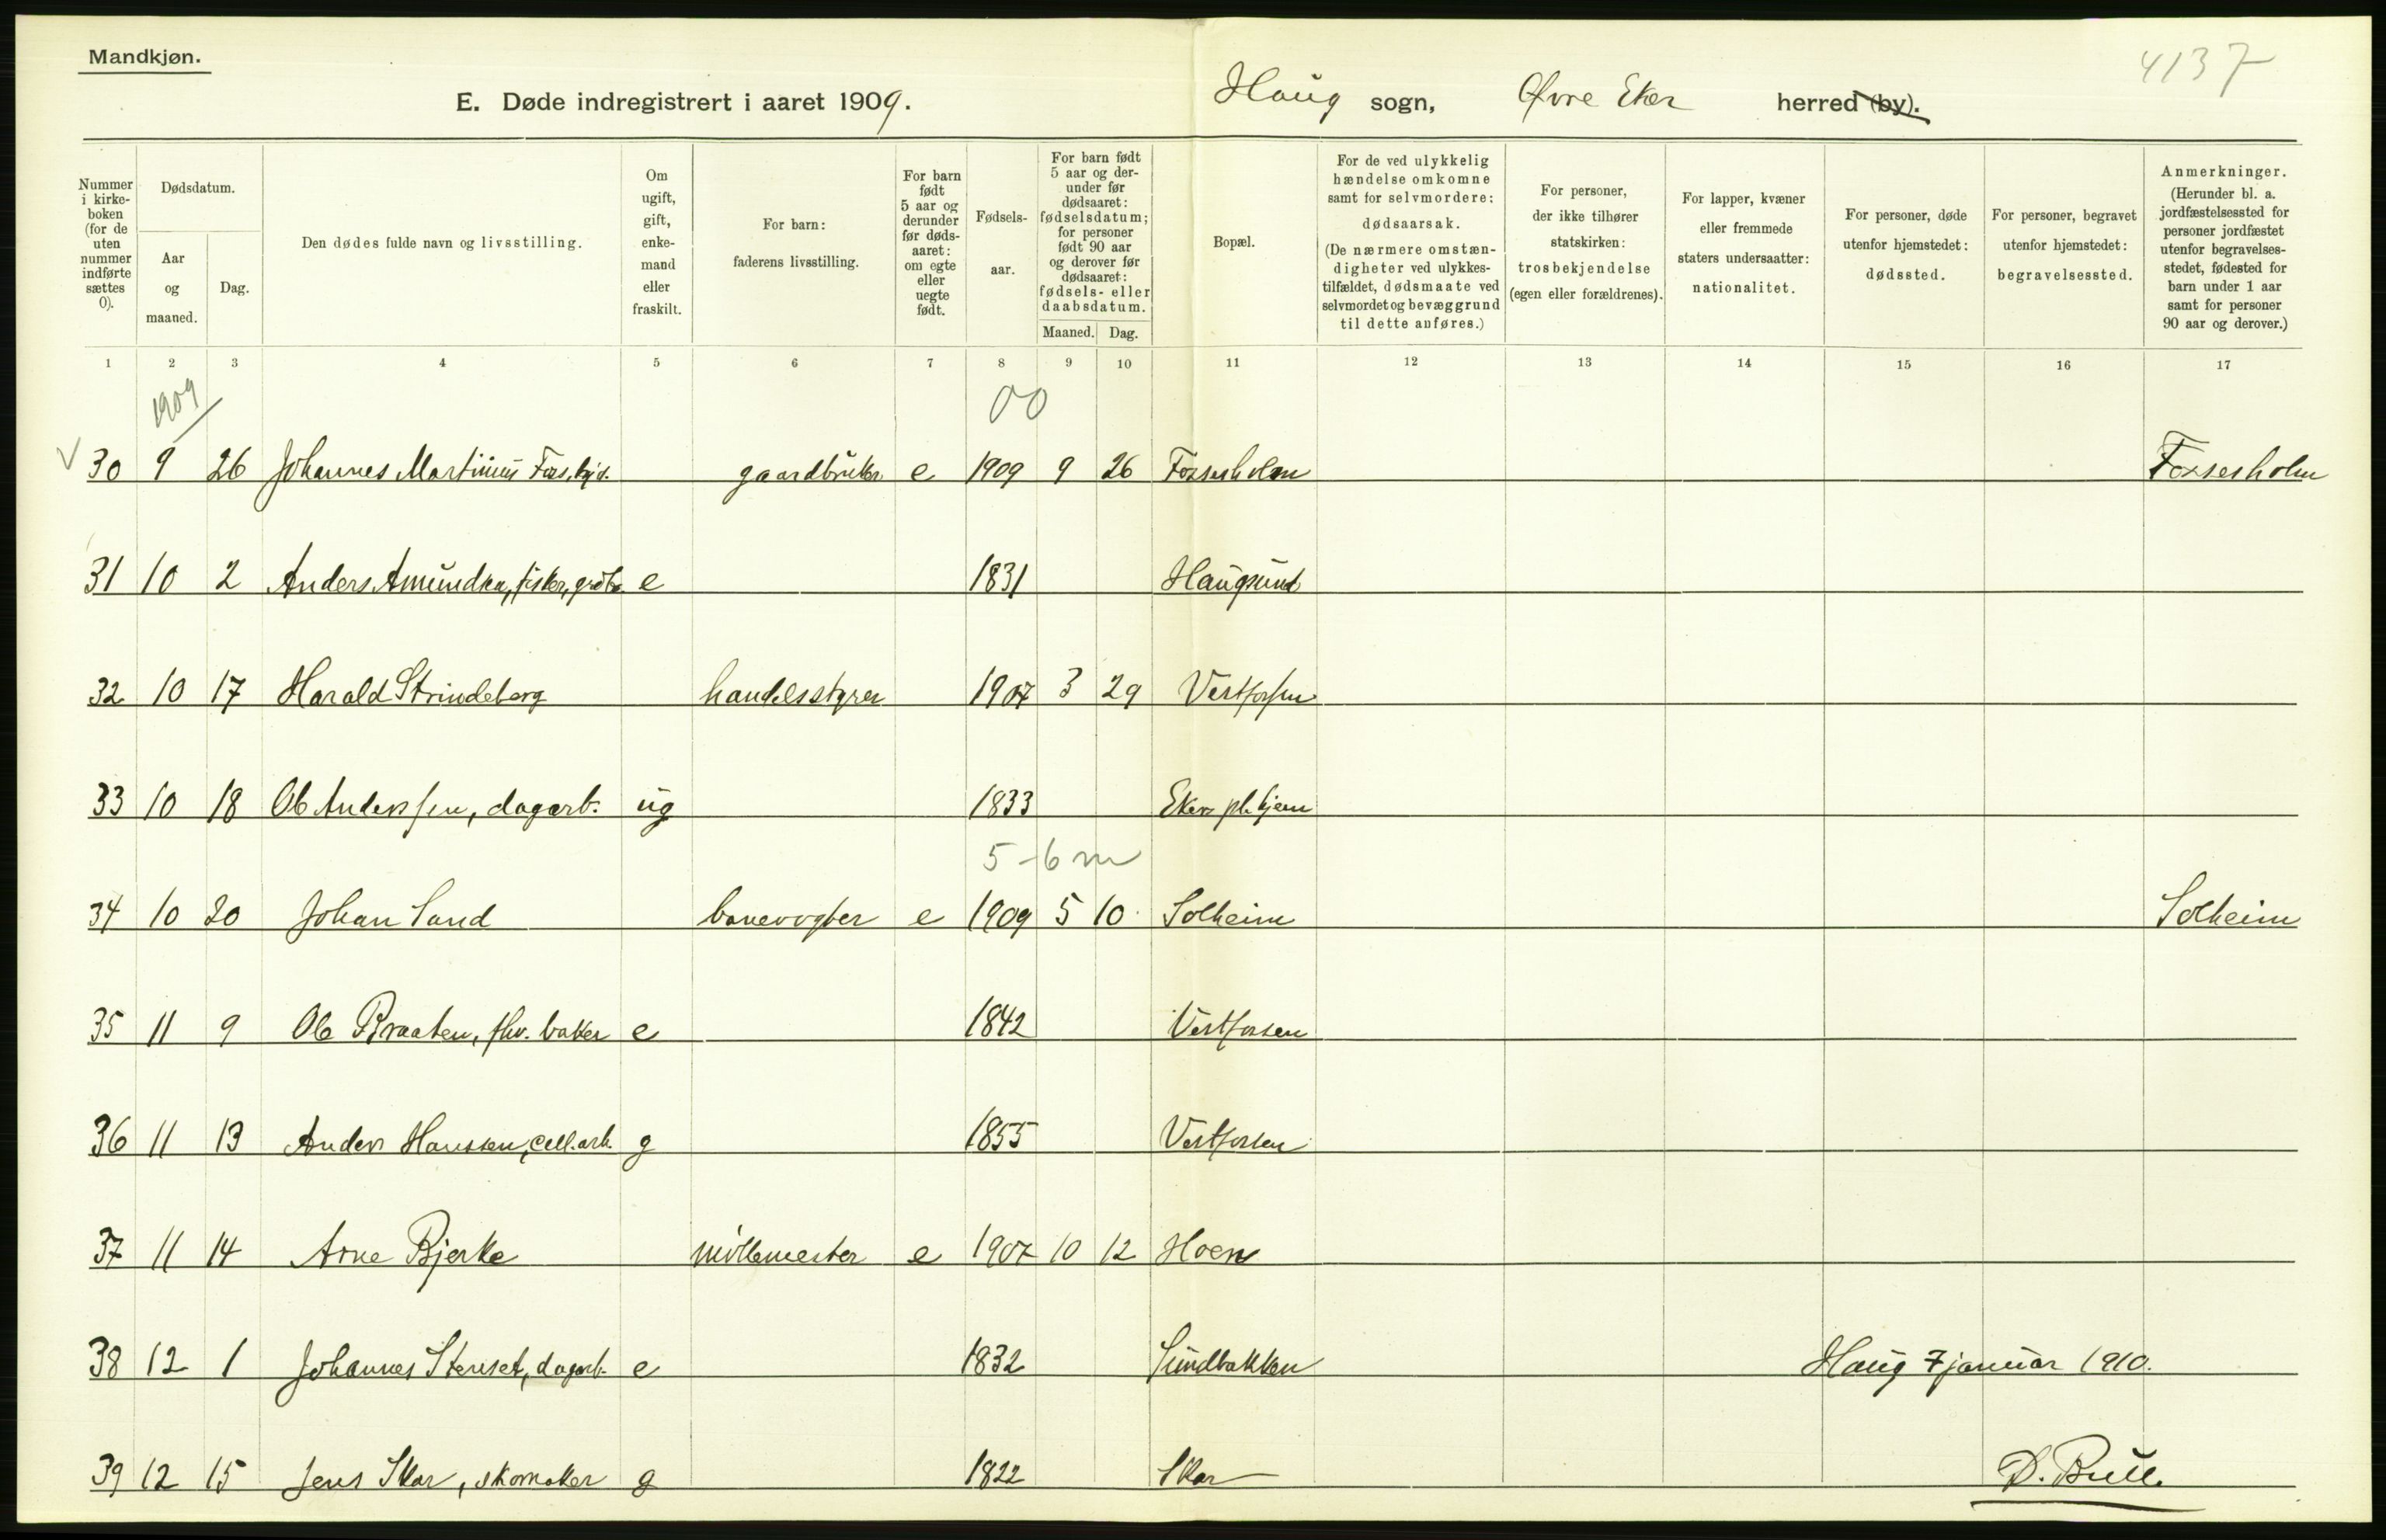 Mandkjøn.
4137
E. Døde indregistrert i aaret 1909. Haug sogn, Øvre Eker herred (by).
Nummer i kirke-boken (for de uten nummer indførte sættes 0).
Dødsdatum.
Aar og maaned.
Dag.
Den dødes fulde navn og livsstilling.
Om ugift, gift, enke-mand eller fraskilt.
For barn: faderens livsstilling.
For barn født 5 aar og derunder før døds-aaret: om egte eller uegte født.
Fødsels-aar.
For barn født 5 aar og der-under før dødsaaret: fødselsdatum; for personer født 90 aar og derover før dødsaaret: fødsels- eller daabsdatum.
Maaned. Dag.
Bopæl.
For de ved ulykkelig hændelse omkomne samt for selvmordere: dødsaarsak. (De nærmere omstæn-digheter ved ulykkes-tilfældet, dødsmaate ved selvmordet og bevæggrund til dette anføres.)
For personer, der ikke tilhører statskirken: trosbekjendelse (egen eller forældrenes).
For lapper, kvæner eller fremmede staters undersaatter: nationalitet.
For personer, døde utenfor hjemstedet: dødssted.
For personer, begravet utenfor hjemstedet: begravelsessted.
Anmerkninger. (Herunder bl. a. jordfæstelsessted for personer jordfæstet utenfor begravelses-stedet, fødested for barn under 1 aar samt for personer 90 aar og derover.)
1 2 3 4 5 6 7 8 9 10 11 12 13 14 15 16 17
1909 00
30 9 26 Johannes Martinius gaardbruker e 1909 9 26 Fossesholm Fossesholm
31 10 2 Anders Amundsen, fisker, e 1831 Haugsund
32 10 17 Harald Strindeberg handelsstyrer 1907 3 29 Vestfossen
33 10 18 Ole Anderssen, dagarb. ug 1833 Ekers pl.hjem
5-6 m
34 10 20 Johan Sand banevogter e 1909 5 10 Solheim Solheim
35 11 9 Ole Braaten, fhv. baker e 1842 Vestfossen
36 11 13 Anders Hanssen, cell.arb. g 1855 Vestfossen
37 11 14 Arne Bjerke møllemester e 1907 10 12 Hoen
38 12 1 Johannes Stenset, dagarb. e 1832 Sundbakken Haug 7 januar 1910.
39 12 15 Jens Skar, skomaker g 1822 Skar D. Bull.